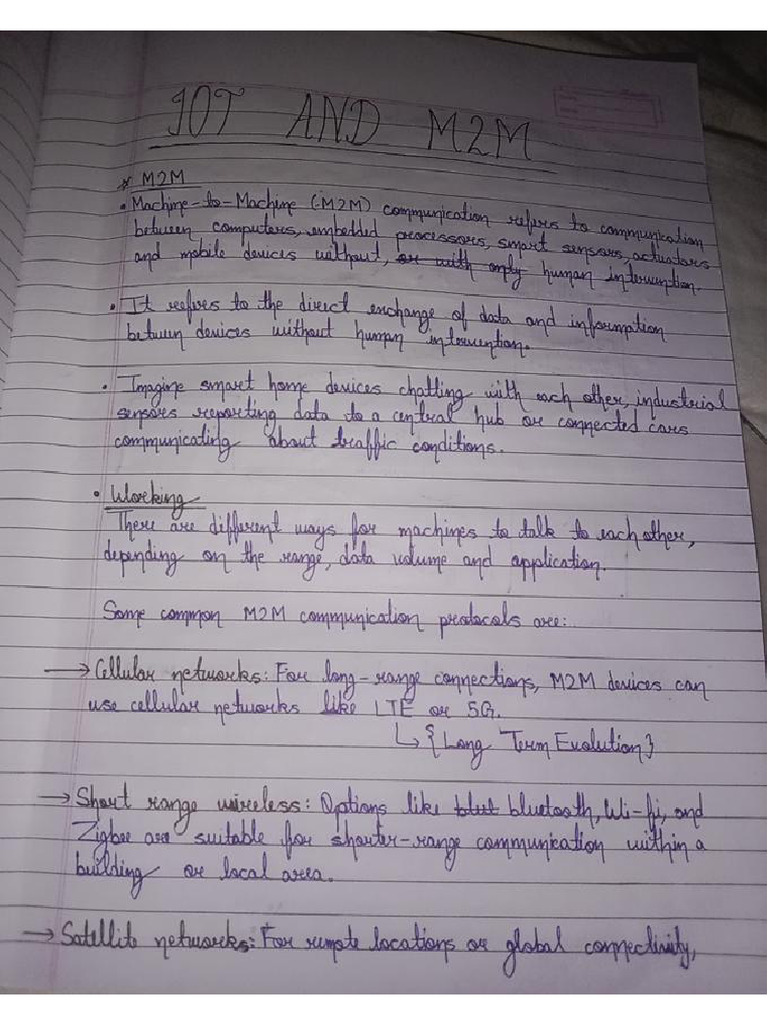 IOT AND M2M
* M2M
• Machine-to-Machine (M2M) communication refers to communication
between computers, embedded processors, smart sensors, actuators
and mobile devices without, or with only human intervention.
• It refers to the direct exchange of data and information
between devices without human intervention.
• Imagine smart home devices chatting with each other, industrial
sensors reporting data to a central hub or connected cars
communicating about traffic conditions.
• Working
There are different ways for machines to talk to each other,
depending on the range, data volume and application.
Some common M2M communication protocols are:
→ Cellular networks: For long-range connections, M2M devices can
use cellular networks like LTE or 5G.
↳ {Long Term Evolution}
→ Short range wireless: Options like bluet bluetooth, Wi-fi, and
Zigbee are suitable for shorter-range communication within a
building or local area.
→ Satellite networks: For remote locations or global connectivity,